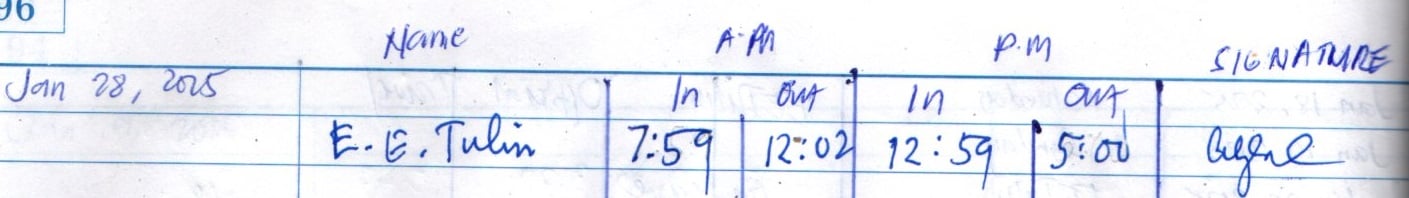 96
Name A.M P.M SIGNATURE
Jan 28, 2025 In Out In Out
E. E. Tulin 7:59 12:02 12:59 5:00